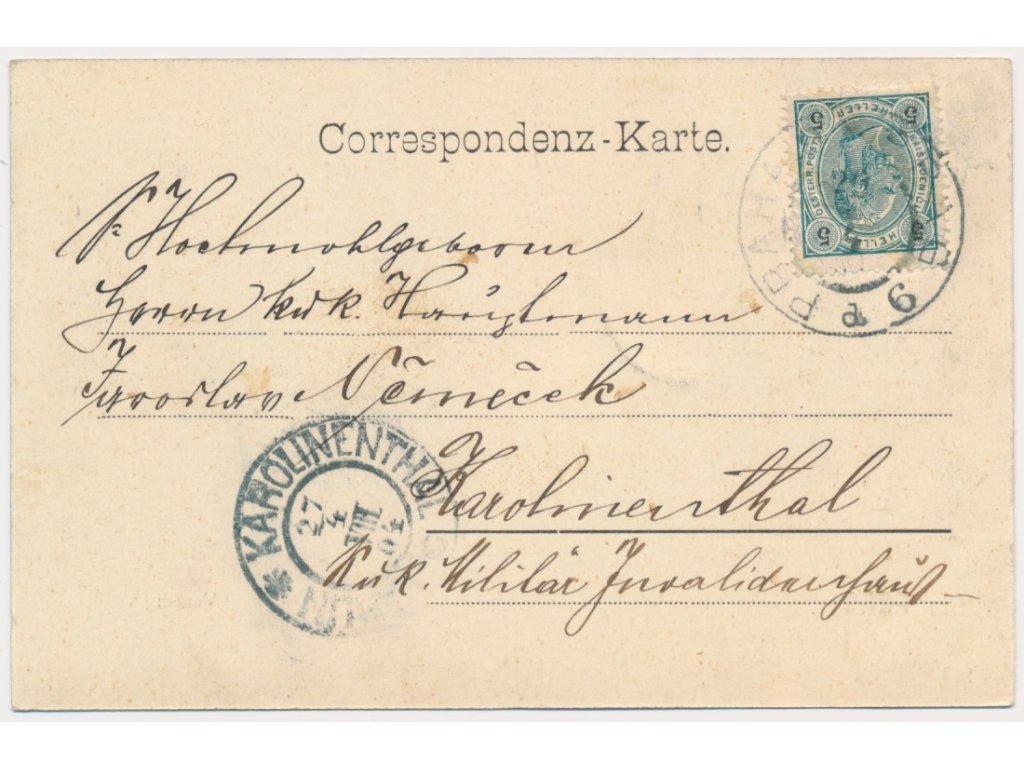 Correspondenz-Karte.
Sr Hochwohlgeboren
Herrn k u k. Hauptmann
Jaroslav Němeček
Karolinenthal
K u k. Militär Invalidenhaus
KAROLINENTHAL
27
4
VIII
04
PRAHA
6
d
5 HELLER 5
OESTERR. POST
5 HELLER 5